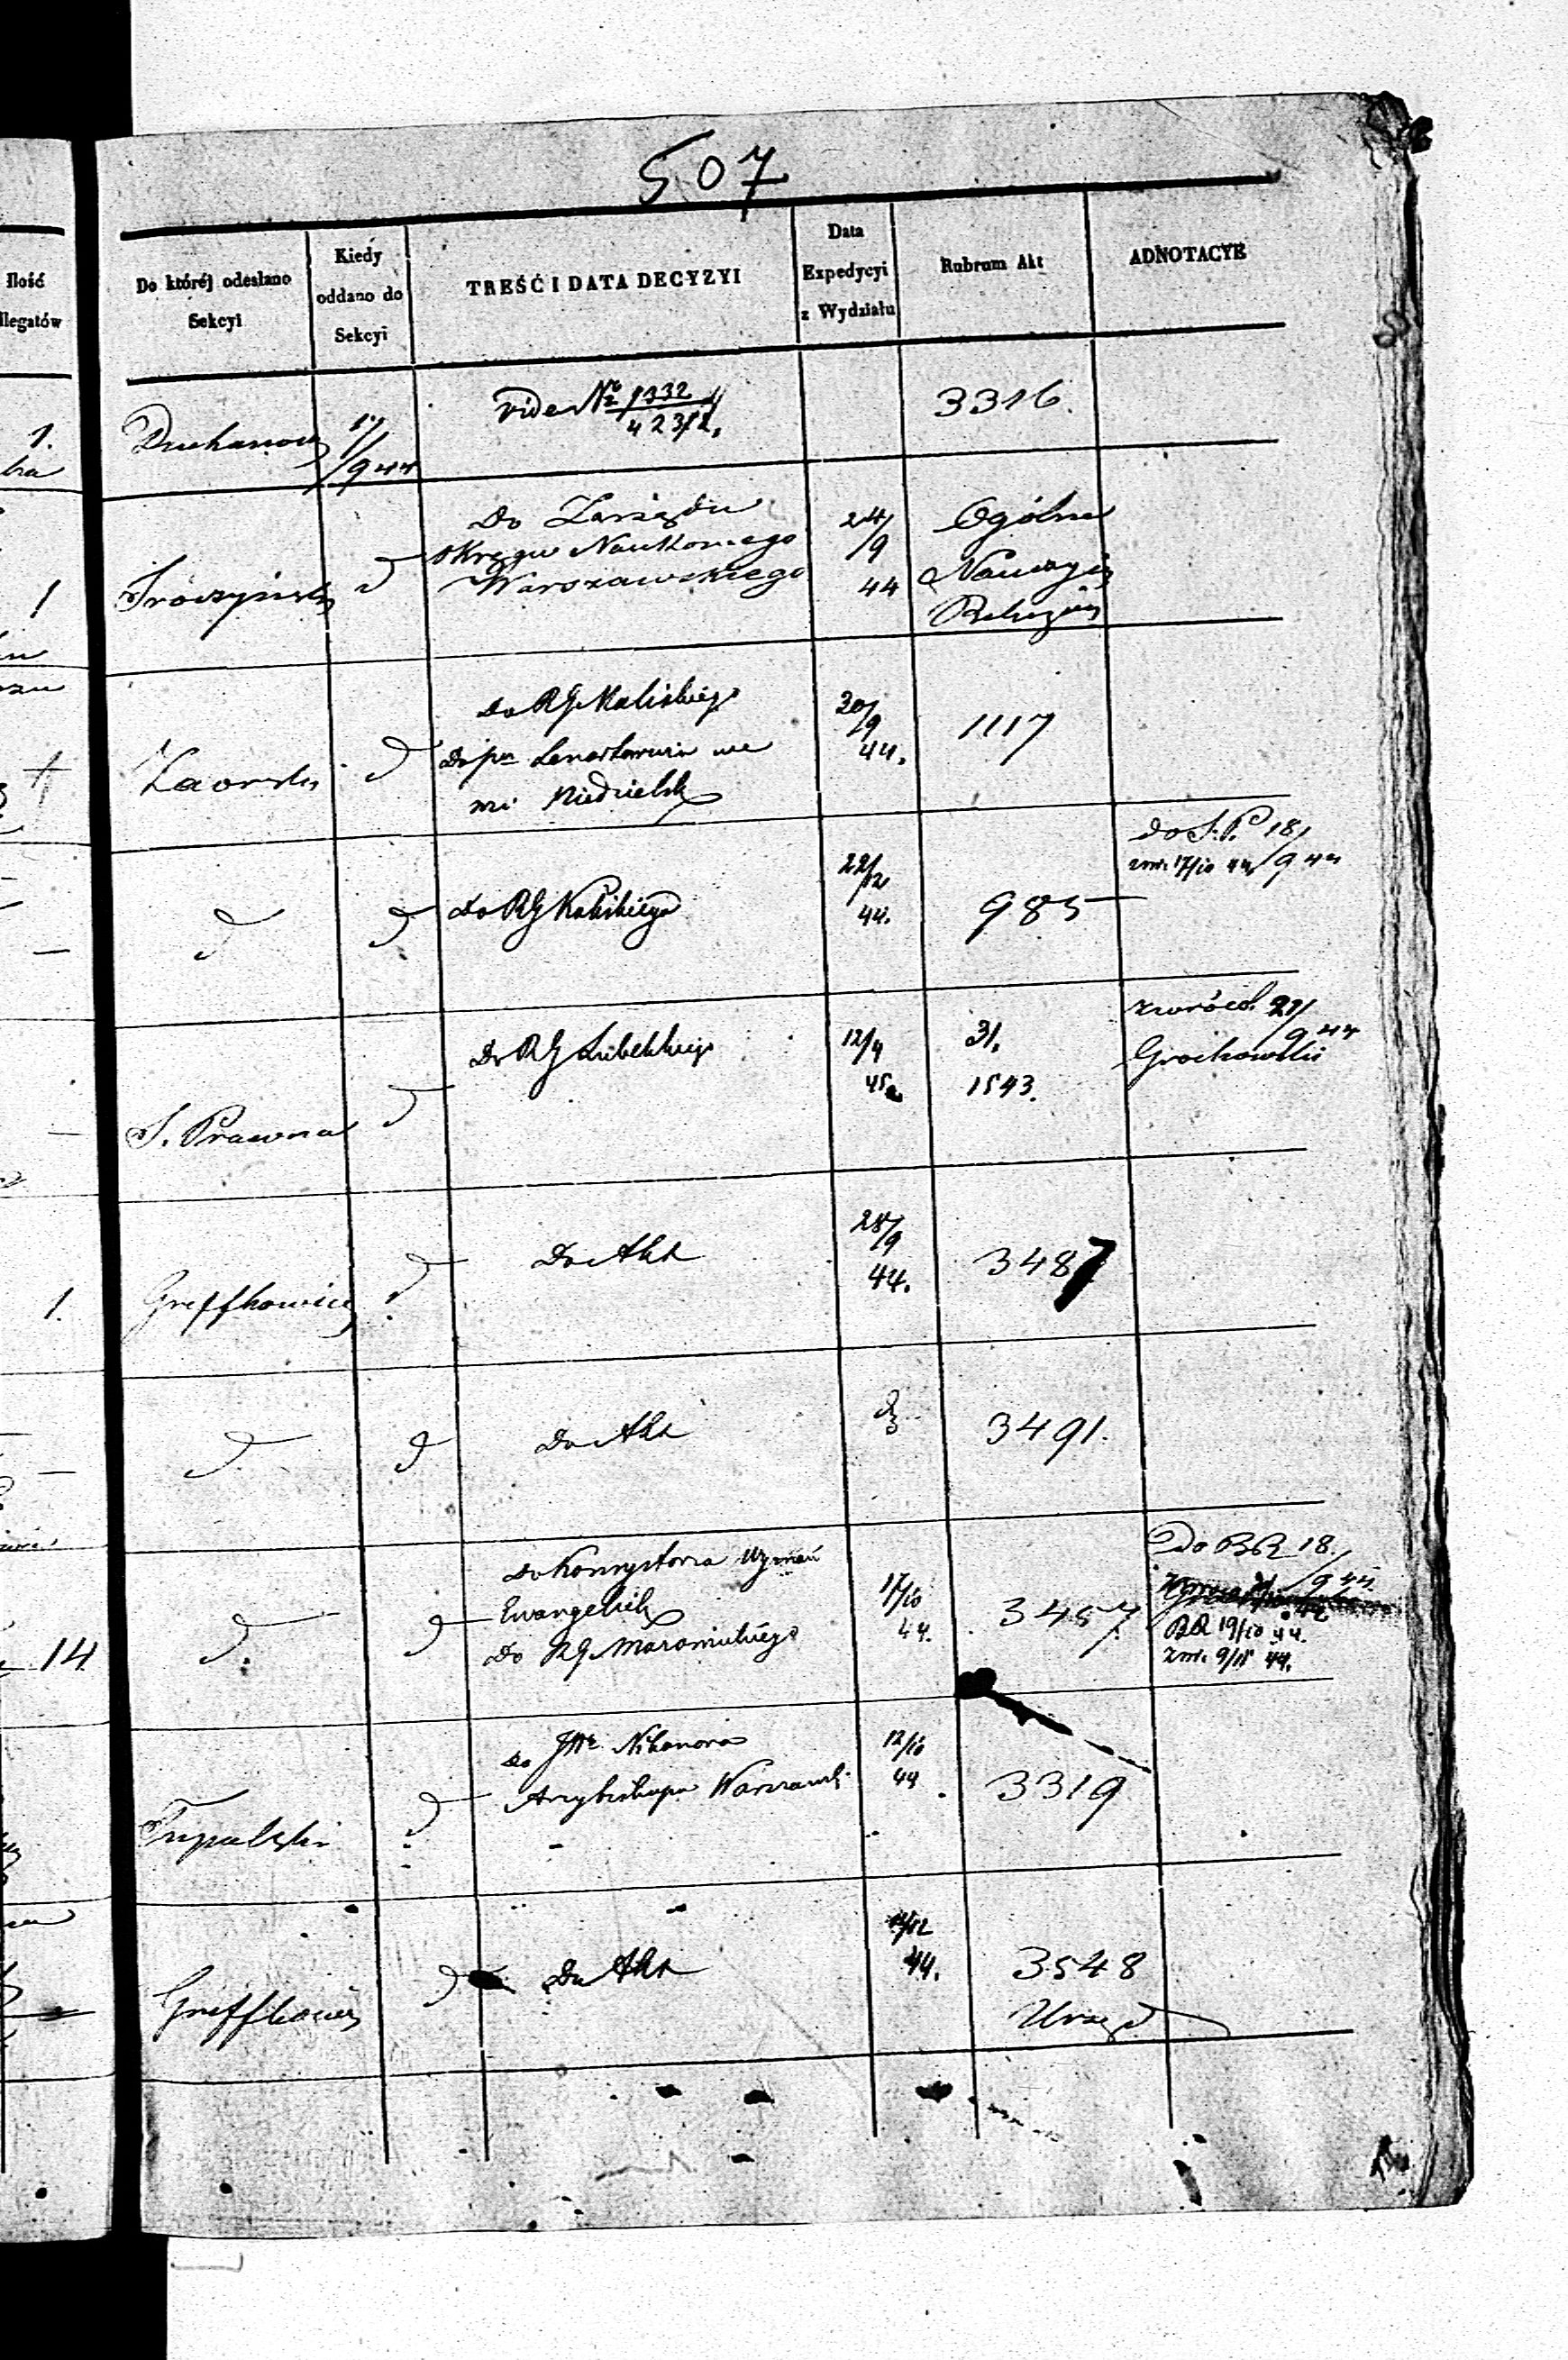 507
Ilość
llegatów
Do której odesłano
Sekcyi
Kiedy
oddano do
Sekcyi
TREŚĆ I DATA DECYZYI
Data
Expedycyi
z Wydziału
Rubrum Akt
ADNOTACYE
1.
17/
/9 44
vide № 1332
3316.
1
d
Do Zarządu
Okręgu Naukowego
Warszawskiego
24/
/9
44
Ogólne
Zaorski
d
Do RG Kaliskiego
Niedzielsk
20/
/9
44.
1117
d
d
Do RG Kaliskiego
22/
/12
44.
985
do S.P. 18/
/9 44
zwr. 17/10 44
S. Prawna
d
Do RG Lubelskiego
12/4
45
31.
1543.
zwrócił 21/
9 44
Grochowski
1.
d
Do Akt
28/
/9
44.
3487
d
d
Do Akt
3491.
14
d
d
Do Konsystorza Wyznań
Ewangelick
Do RG Mazowieckiego
17/10
44.
3457.
Do BR 18.
/9 44.
BR 19/10 44.
zwr. 9/11 44.
d
do JW Nikanora
Arcybiskupa Warszawsk
12/10
44
3319
d
Do Akt
44.
3548
Urzęd